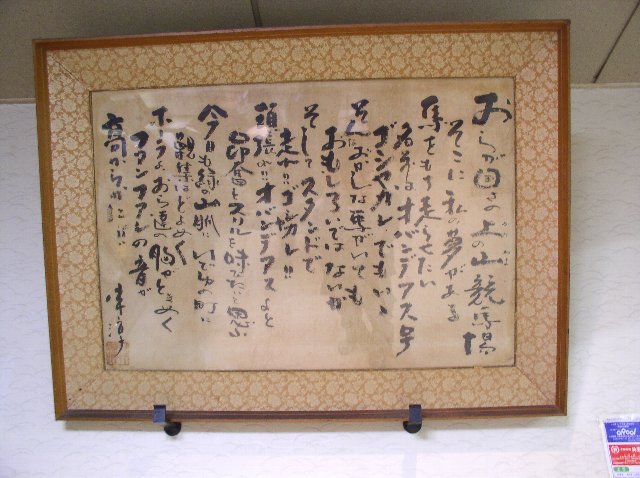 おらが国さの上の山競馬場
そこに私の夢がある
馬をもち走らせたい
名前はオバンデアス号
ゴンヤカレでもいい
そんなおかしな馬がいても
おもしろいではないか
そしてスタンドで
走れ!!ゴンヤカレ!!
頑張れ!!オバンデアスよと
興奮とスリルを味わいたいと思う
今日も緑の山脈に いで湯の町に
観集はどよめく
ホークよおら達の胸がときめく
ファンファレの音が
高からかにこだ!!